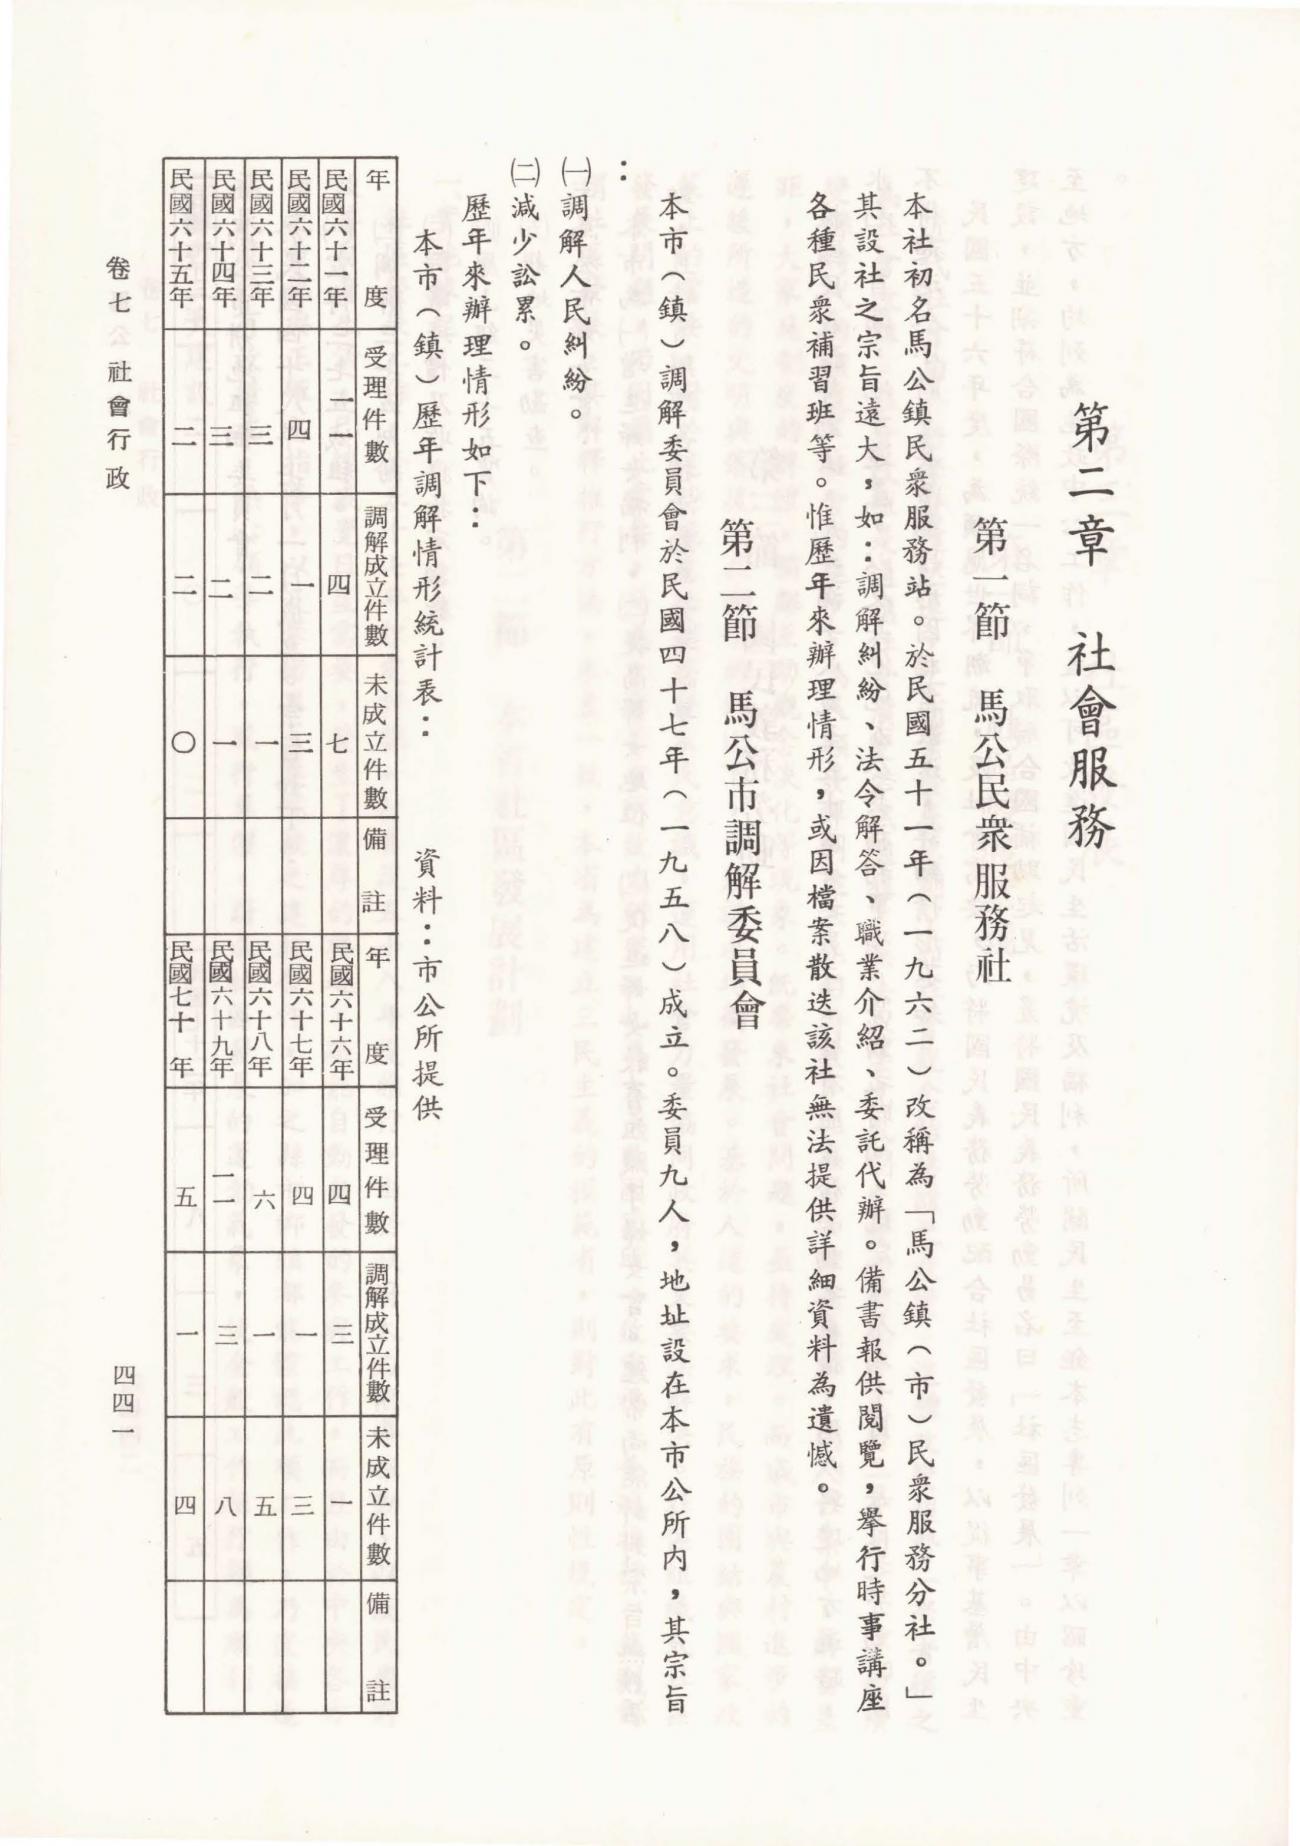 第二章　社會服務
第一節　馬公民衆服務社
本社初名馬公鎮民衆服務站。於民國五十一年（一九六二）改稱為「馬公鎮（市）民衆服務分社。」
其設社之宗旨遠大，如：調解糾紛、法令解答、職業介紹、委託代辦。備書報供閱覽，舉行時事講座
各種民衆補習班等。惟歷年來辦理情形，或因檔案散迭該社無法提供詳細資料為遺憾。
第二節　馬公市調解委員會
本市（鎮）調解委員會於民國四十七年（一九五八）成立。委員九人，地址設在本市公所內，其宗旨
：
㈠調解人民糾紛。
㈡減少訟累。
歷年來辦理情形如下：
本市（鎮）歷年調解情形統計表：　資料：市公所提供
年度　受理件數　調解成立件數　未成立件數　備註　年度　受理件數　調解成立件數　未成立件數　備註
民國六十一年　一一　四　七　民國六十六年　四　三　一
民國六十二年　四　一　三　民國六十七年　四　一　三
民國六十三年　三　二　一　民國六十八年　六　一　五
民國六十四年　三　二　一　民國六十九年　一一　三　八
民國六十五年　二　二　〇　民國七十年　五　一　四
卷七　社會行政
四四一